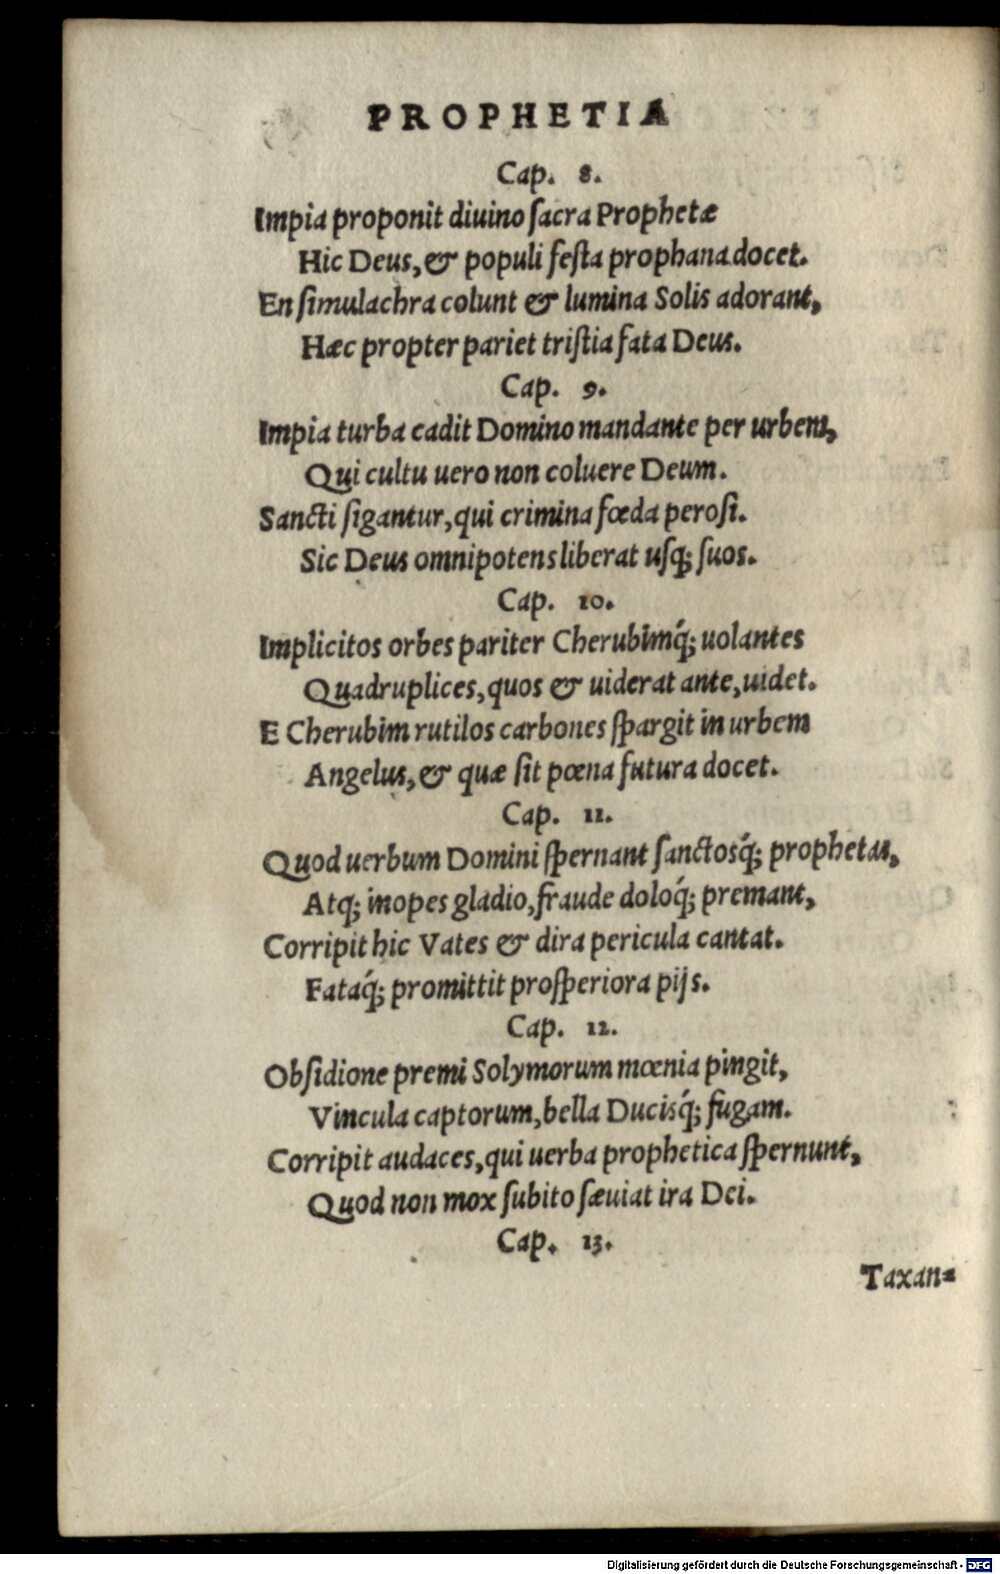 PROPHETIA
Cap. 8.
Impia proponit diuino ſacra Prophetæ
Hic Deus, & populi feſta prophana docet.
En ſimulachra colunt & lumina Solis adorant,
Hæc propter pariet triſtia fata Deus.
Cap. 9.
Impia turba cadit Domino mandante per urbem,
Qui cultu uero non coluere Deum.
Sancti ſigantur, qui crimina fœda peroſi.
Sic Deus omnipotens liberat uſq; ſuos.
Cap. 10.
Implicitos orbes pariter Cherubimq́; uolantes
Quadruplices, quos & uiderat ante, uidet.
E Cherubim rutilos carbones ſpargit in urbem
Angelus, & quæ ſit pœna futura docet.
Cap. 11.
Quod uerbum Domini ſpernant ſanctosq́; prophetas,
Atq; inopes gladio, fraude doloq́; premant,
Corripit hic Vates & dira pericula cantat.
Fataq́; promittit proſperiora pijs.
Cap. 12.
Obſidione premi Solymorum mœnia pingit,
Vincula captorum, bella Ducisq́; fugam.
Corripit audaces, qui uerba prophetica ſpernunt,
Quod non mox ſubito ſæuiat ira Dei.
Cap. 13.
Taxan=
Digitalisierung gefördert durch die Deutsche Forschungsgemeinschaft - DFG